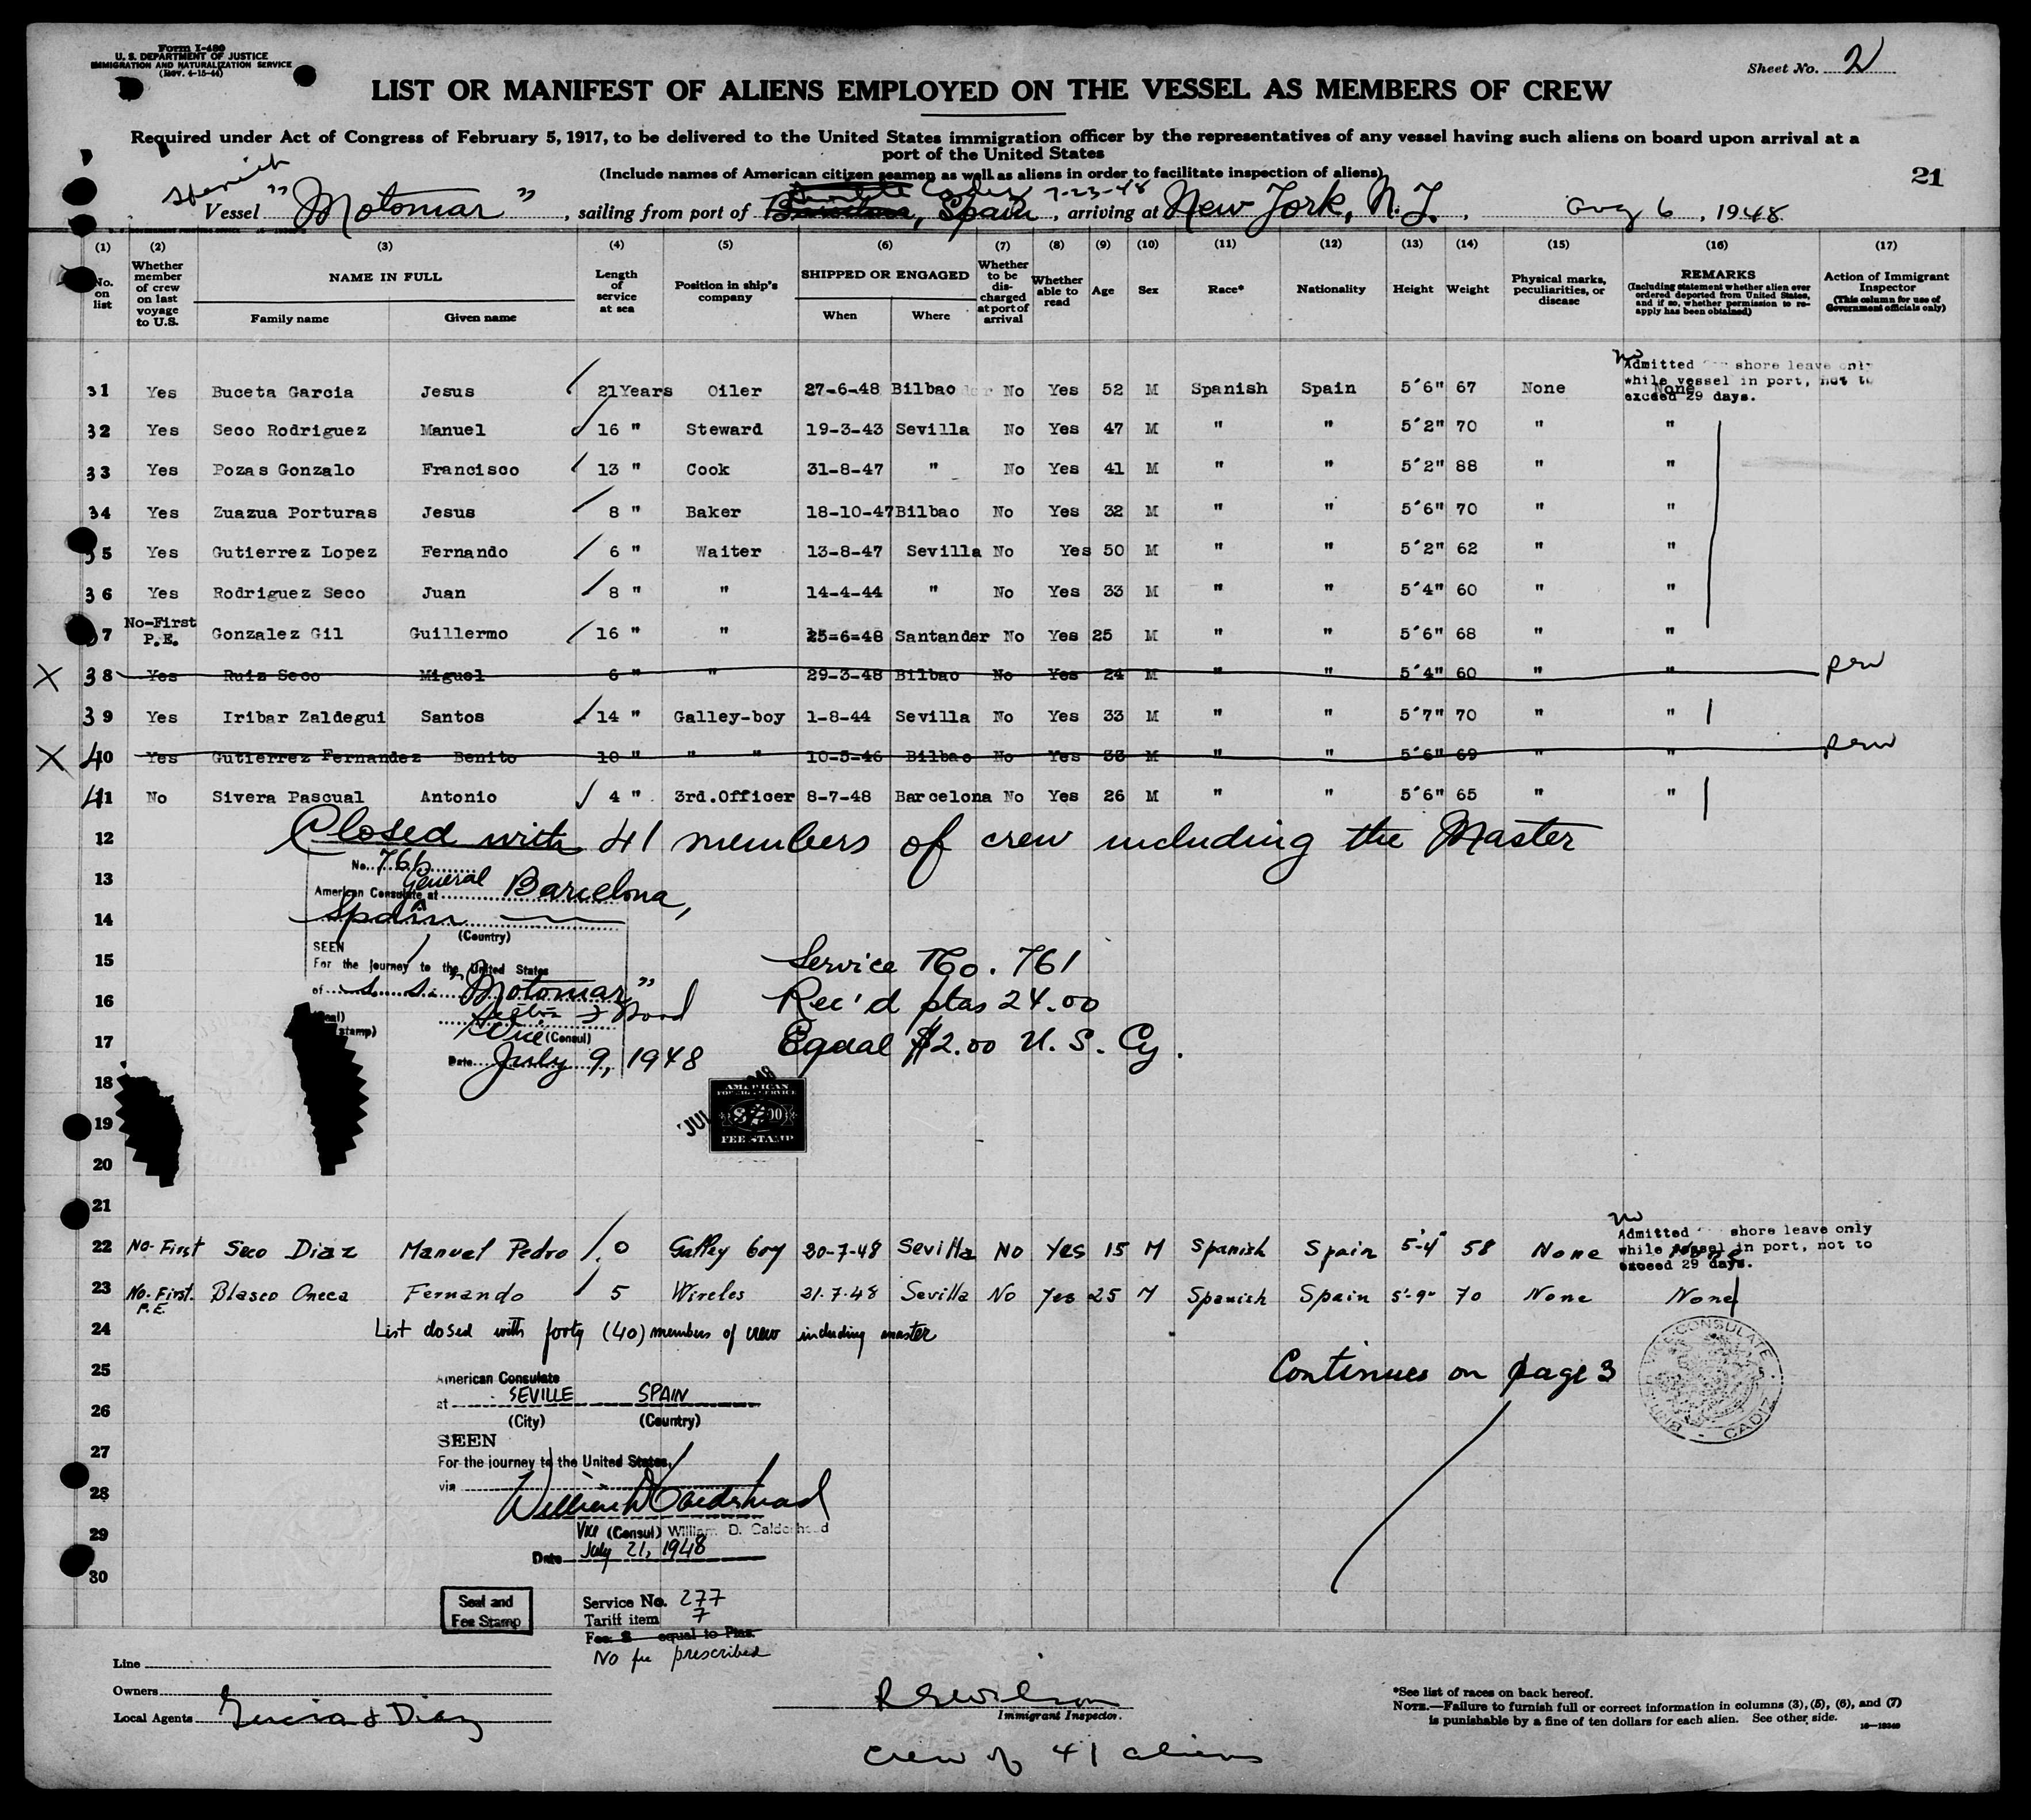 Form I-480
U. S. DEPARTMENT OF JUSTICE
IMMIGRATION AND NATURALIZATION SERVICE
(Rev. 4-15-44)
Sheet No. 2
LIST OR MANIFEST OF ALIENS EMPLOYED ON THE VESSEL AS MEMBERS OF CREW
Required under Act of Congress of February 5, 1917, to be delivered to the United States immigration officer by the representatives of any vessel having such aliens on board upon arrival at a
port of the United States
(Include names of American citizen seamen as well as aliens in order to facilitate inspection of aliens)
21
Spanish
Cadiz 7-23-48
Vessel "Motomar", sailing from port of Barcelona, Spain, arriving at New York, N.Y., Aug 6, 1948
(1) (2) (3) (4) (5) (6) (7) (8) (9) (10) (11) (12) (13) (14) (15) (16) (17)
No. on list
Whether member of crew on last voyage to U.S.
NAME IN FULL
Family name Given name
Length of service at sea
Position in ship's company
SHIPPED OR ENGAGED
When Where
Whether to be discharged at port of arrival
Whether able to read
Age
Sex
Race*
Nationality
Height
Weight
Physical marks, peculiarities, or disease
REMARKS
(Including statement whether alien ever ordered deported from United States, and if so, whether permission to reapply has been obtained)
Action of Immigrant Inspector
(This column for use of Government officials only)
no
Admitted shore leave only
while vessel in port, not to
exceed 29 days.
31 Yes Buceta Garcia Jesus 21 Years Oiler 27-6-48 Bilbao No Yes 52 M Spanish Spain 5'6" 67 None None
32 Yes Seco Rodriguez Manuel 16 " Steward 19-3-43 Sevilla No Yes 47 M " " 5'2" 70 " "
33 Yes Pozas Gonzalo Francisco 13 " Cook 31-8-47 " No Yes 41 M " " 5'2" 88 " "
34 Yes Zuazua Porturas Jesus 8 " Baker 18-10-47 Bilbao No Yes 32 M " " 5'6" 70 " "
35 Yes Gutierrez Lopez Fernando 6 " Waiter 13-8-47 Sevilla No Yes 50 M " " 5'2" 62 " "
36 Yes Rodriguez Seco Juan 8 " " 14-4-44 " No Yes 33 M " " 5'4" 60 " "
37 No-First P.E. Gonzalez Gil Guillermo 16 " " 25-6-48 Santander No Yes 25 M " " 5'6" 68 " "
X 38 Yes Ruiz Seco Miguel 6 " " 29-3-48 Bilbao No Yes 24 M " " 5'4" 60 " "
39 Yes Iribar Zaldegui Santos 14 " Galley-boy 1-8-44 Sevilla No Yes 33 M " " 5'7" 70 " "
X 40 Yes Gutierrez Fernandez Benito 10 " " " 10-5-46 Bilbao No Yes 33 M " " 5'6" 69 " "
41 No Sivera Pascual Antonio 4 " 3rd.Officer 8-7-48 Barcelona No Yes 26 M " " 5'6" 65 " "
12 Closed with 41 members of crew including the Master
No. 766
13 American Consulate General at Barcelona,
14 Spain
(Country)
SEEN
15 For the journey to the United States
Service No. 761
16 of s. s. "Motomar"
Rec'd ptas 24.00
(Seal)
stamp)
17 Vice (Consul)
Equal $2.00 U. S. Cy.
Date July 9, 1948
18
AMERICAN
FOREIGN SERVICE
19
FEE STAMP
20
21
no
Admitted shore leave only
while vessel in port, not to
exceed 29 days.
22 No-First Seco Diaz Manuel Pedro 0 Galley boy 20-7-48 Sevilla No Yes 15 M Spanish Spain 5'-4" 58 None None
23 No-First. P.E. Blasco Oneca Fernando 5 Wireles 21.7.48 Sevilla No Yes 25 M Spanish Spain 5'-9" 70 None None
24 List closed with forty (40) members of crew including master
25 Continues on page 3
VICE-CONSULATE
CADIZ
American Consulate
at SEVILLE SPAIN
26 (City) (Country)
SEEN
27 For the journey to the United States,
via
28 William D Calderhead
29 Vice (Consul) William D. Calderhead
Date July 21, 1948
30
Seal and
Fee Stamp
Service No. 277
Tariff item 7
Fee: $ equal to Ptas.
No fee prescribed
Line
Owners
Local Agents Garcia & Diaz
Immigrant Inspector.
*See list of races on back hereof.
NOTE.—Failure to furnish full or correct information in columns (3), (5), (6), and (7)
is punishable by a fine of ten dollars for each alien. See other side.
crew of 41 aliens